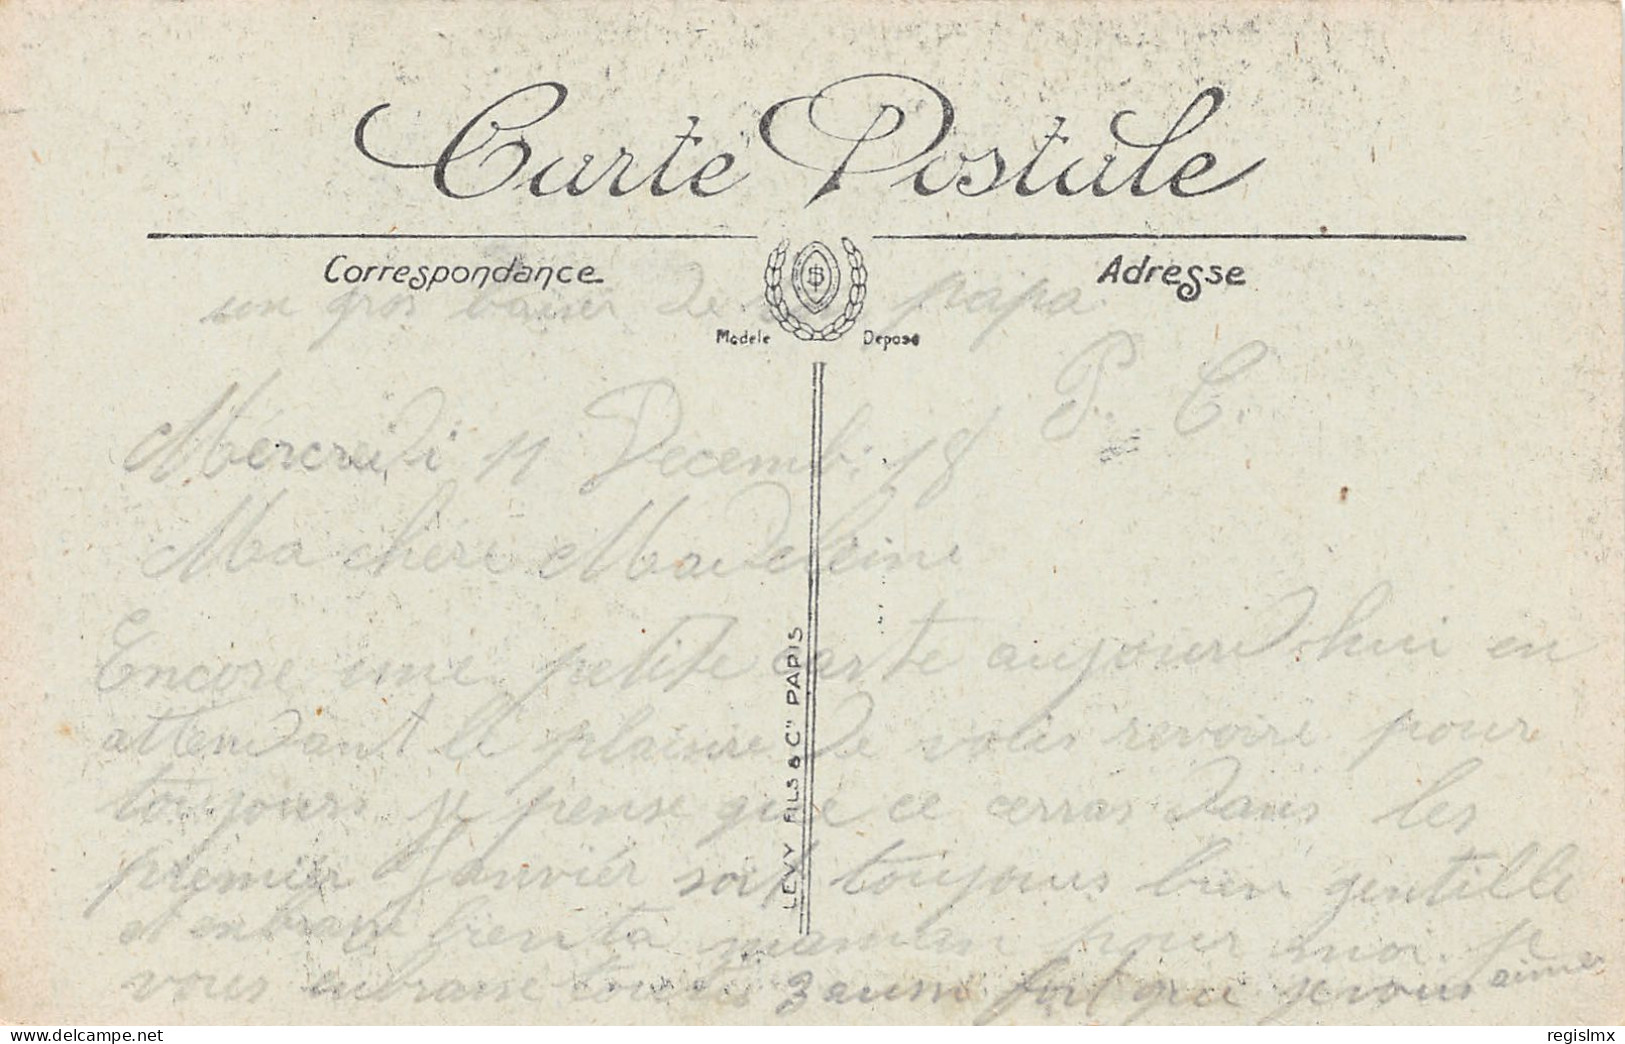 Carte Postale
Correspondance
Adresse
un gros baiser de papa
Modele Depose
P. C.
Mercredi 11 Decemb: 18
Ma chere Madeleine
Encore une petite carte aujourd'hui en
attendant le plaisire de vous revoire pour
toujours je pense que ce cerras dans les
premier Janvier soit toujours bien gentille
et enbrasse bien ta maman pour moi. je
vous enbrasse toutes 3 aussi fort que je vous aimes
LEVY FILS & Cie PARIS
regislmx